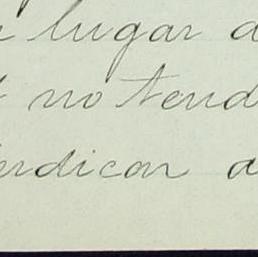 lugar a
no tend
erdicar a